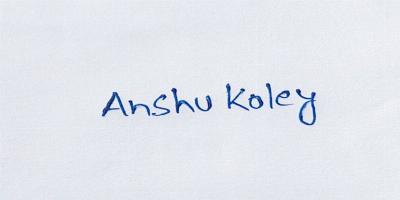 Anshu Koley